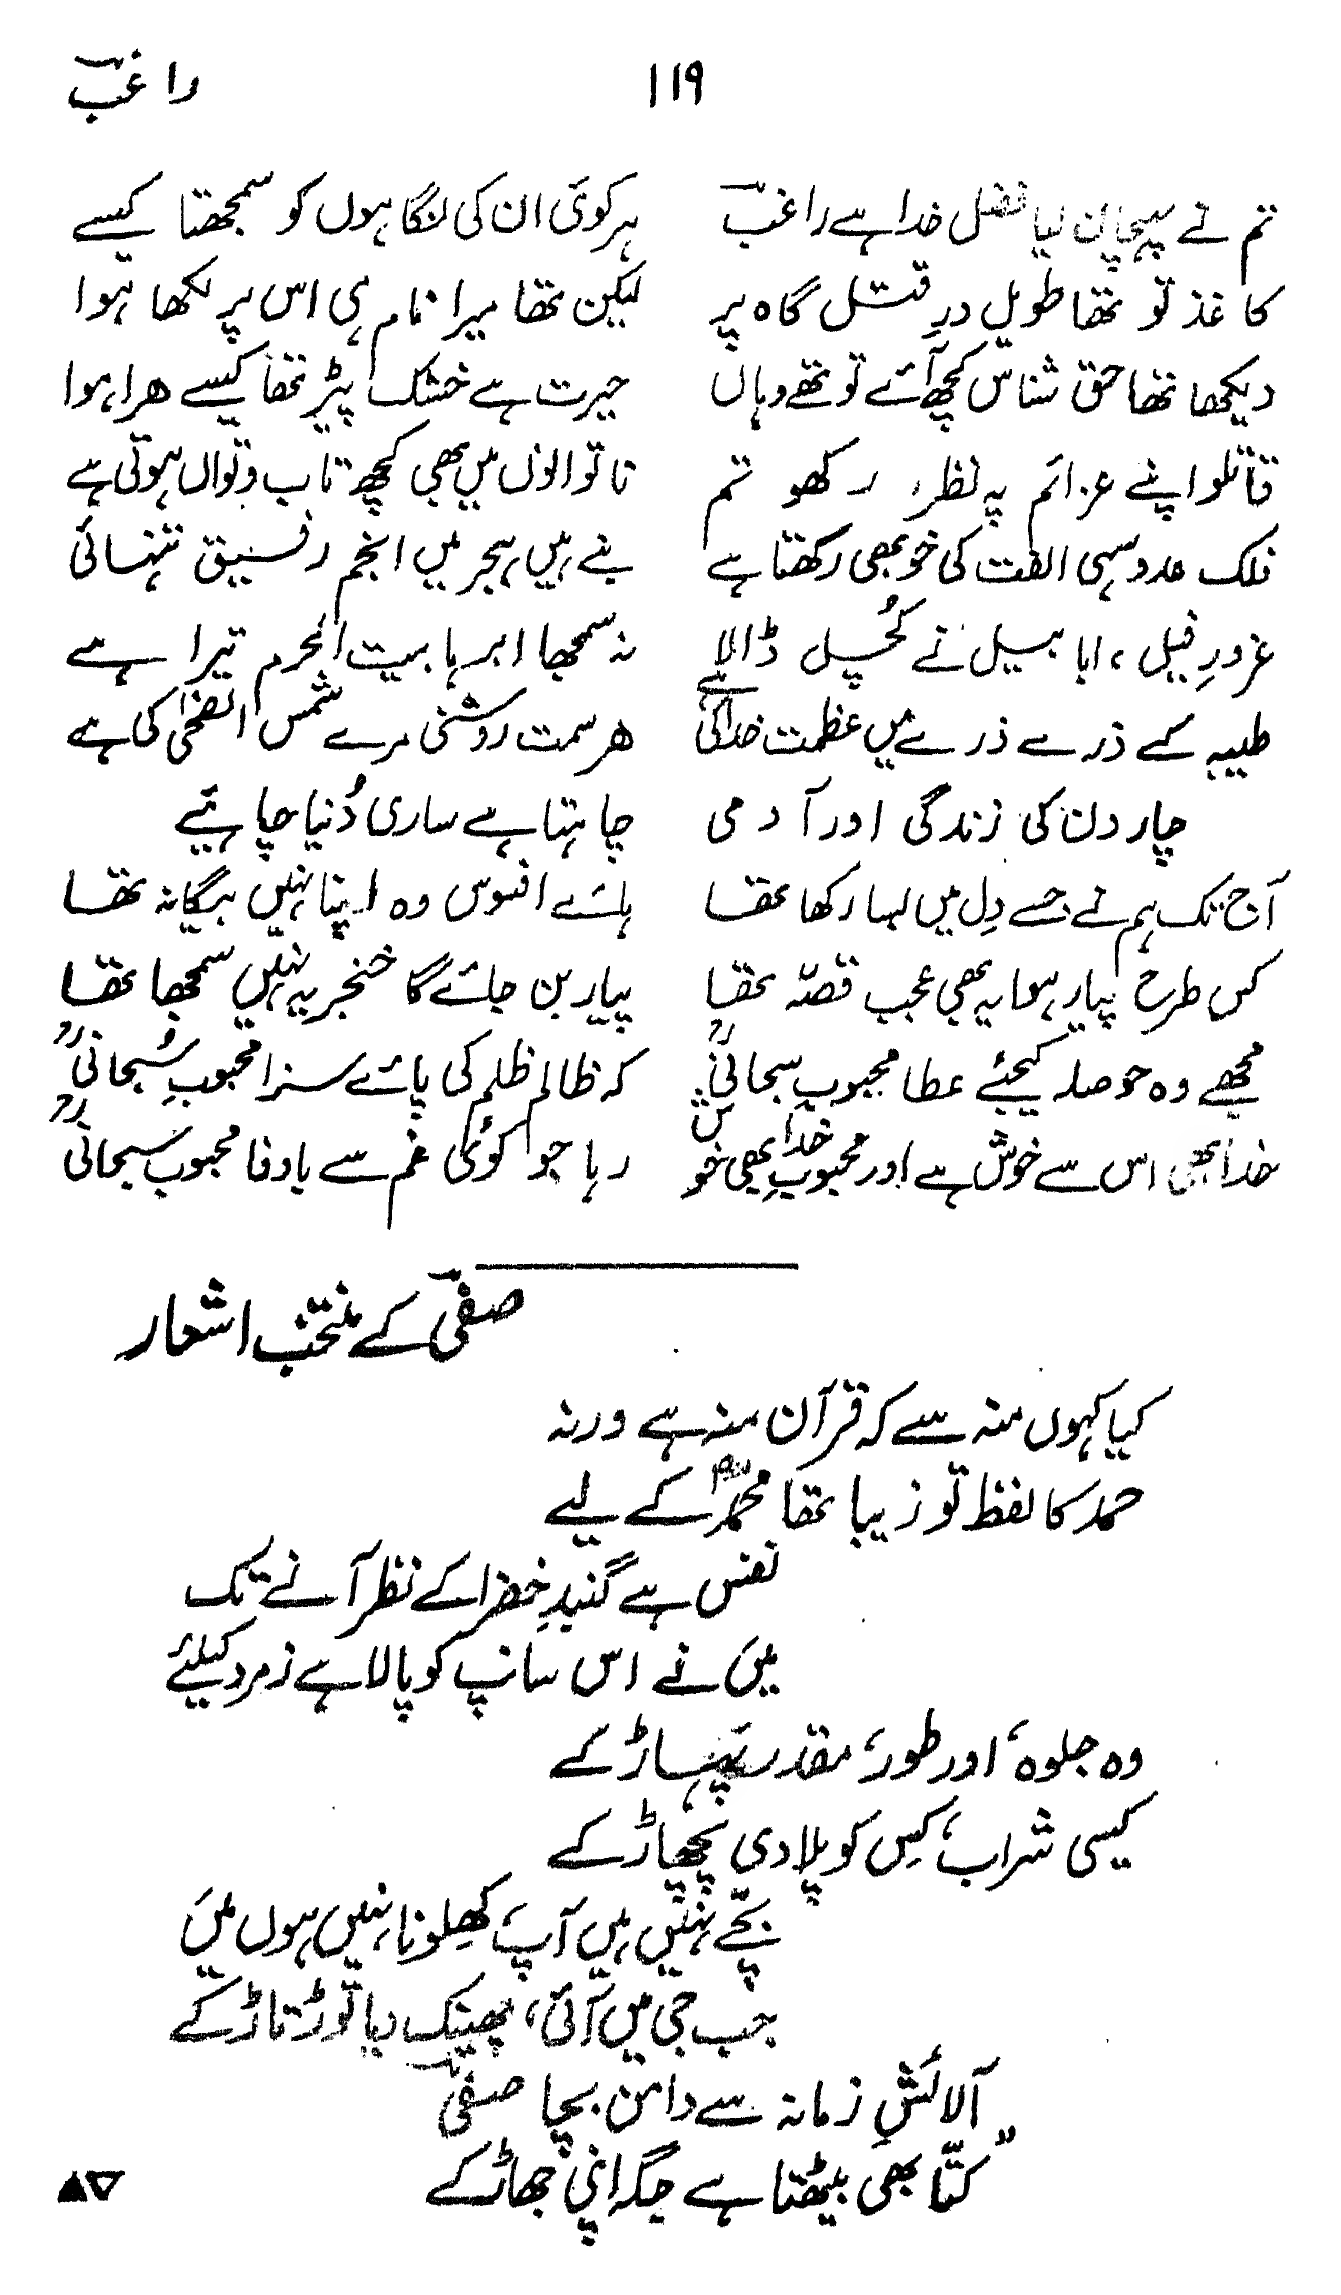 راغب ۱۱۹
تم نے پہچان لیا فضل خدا ہے راغب ہر کوئی ان کی نگاہوں کو سمجھتا کیسے
کاغذ تو تھا طویل درِ قتل گاہ پر لیکن تھا میرا نام ہی اس پر لکھا ہوا
دیکھا تھا حق شناس کچھ آئے تو تھے وہاں حیرت ہے خشک پیڑ تھا کیسے ھرا ہوا
قاتلو اپنے عزائم پہ نظر رکھو تم ناتوانوں میں بھی کچھ تاب و تواں ہوتی ہے
فلک عدو سہی الفت کی خو بھی رکھتا ہے بنے ہیں ہجر میں انجم رفیق تنہائی
غرورِ فیل، ابابیل نے کُچل ڈالا نہ سمجھا ابرہا بیت الحرم تیرا ہے
طیبہ کے ذرے ذرے میں عظمت خدا کی ہے ھر سمت روشنی مرے شمس الضحیٰ کی ہے
چار دن کی زندگی اور آدمی چاہتا ہے ساری دُنیا چاہیے
آج تک ہم نے جسے دِل میں بسا رکھا تھا ہائے افسوس وہ اپنا نہیں بیگانہ تھا
کس طرح پیار ہوا یہ بھی عجب قصّہ تھا پیار بن جائے گا خنجر یہ نہیں سمجھا تھا
مجھے وہ حوصلہ کیجئے عطا محبوبِ سبحانیؒ کہ ظالم ظلم کی پائے سزا محبوبِ سُبحانیؒ
خدا بھی اس سے خوش ہے اور محبوبِ خدا بھی خوش رہا جو کوئی غم سے باوفا محبوب سبحانیؒ
صفی کے منتخب اشعار
کیا کہوں منہ سے کہ قرآن منہ ہے ورنہ
حمد کا لفظ تو زیبا تھا محمدؐ کے لیے
نفس ہے گنبدِ خضرا کے نظر آنے تک
میں نے اس سانپ کو پالا ہے زمرد کیلئے
وہ جلوہ، اور طور، مقدر پہاڑ کے
کیسی شراب، کِس کو پلا دی پچھاڑ کے
بچّے نہیں ہیں آپ، کھِلونا نہیں ہوں میں
جب جی میں آئی، پھینک دیا توڑ تاڑ کے
آلائشِ زمانہ سے دامن بچا صفی
"کتّا بھی بیٹھتا ہے جگہ اپنی جھاڑ کے
▲▽